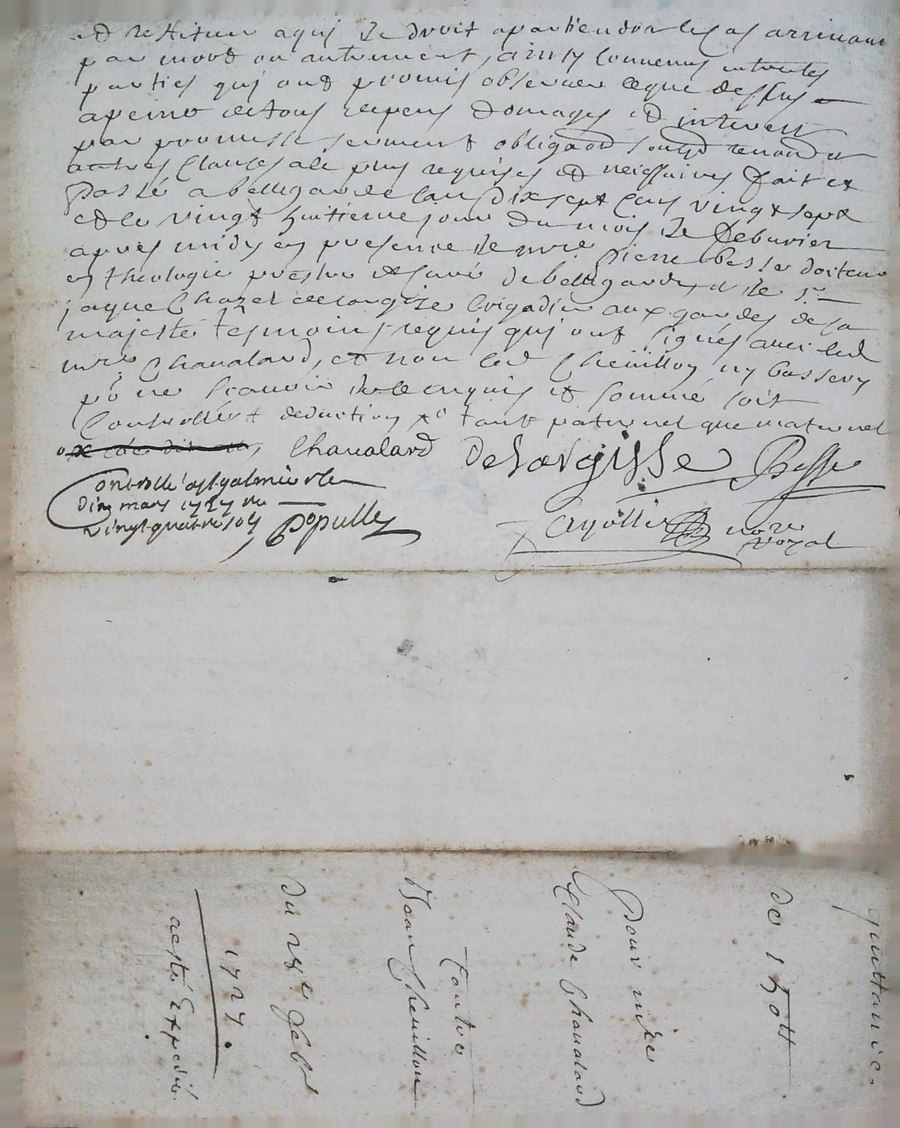 et restituer a qui de droit apartiendra le cas arrivant
par mord ou autrement, ainsy convenus entre les
parties qui ont promis observer ce que dessus
a peine de tous depens domages et interest
par promesse serment obligaon soumd renond et
autres clauses ale plus requises et necessaires fait et
passé a bellegarde lan dix sept cens vingt sept
et le vingt huitieme jour du mois de febvrier
apres midy en presence de mre pierre besse docteur
en theologie prestre et curé de bellegarde, et de sr
jaque chazel brigadier aux gardes de sa
majesté tesmoins requis qui ont signés avec led
mre Chaualard, et non led Cheuillon ny
po ne scauoir de ce enquis et sommé soit
Controllé deduction tant paternel que maternel
Chaualard Delargisse Besse
Controllé a st galmier le
dix mars 1727 re
vingt quatre sols
Populle
nore
royal
quittance
de 150tt
pour mre
Claude Chaualard
Contre
Jean Cheuillon
du 28e feb
1727.
acsté Expedié